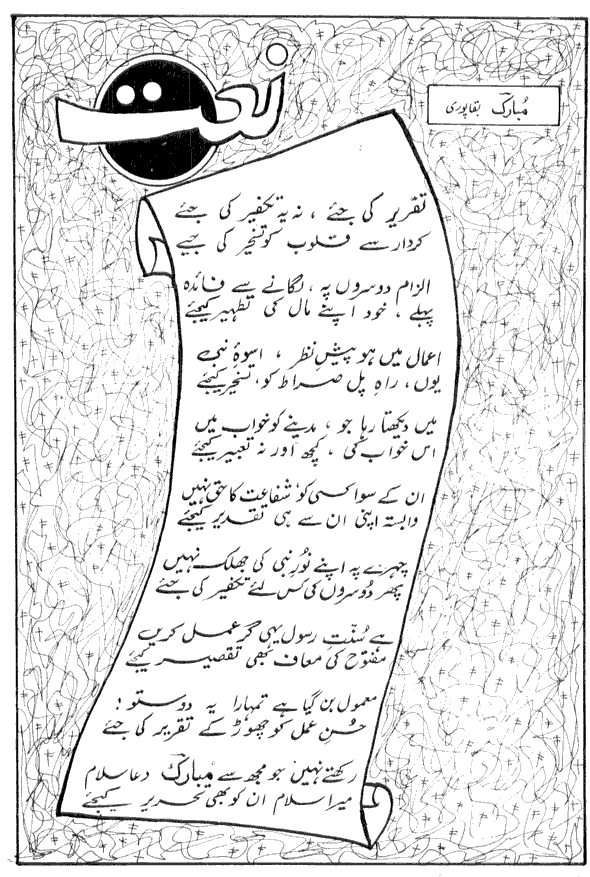 نعت
مُبارک بقاپوری
تقریر کی جئے ، نہ یہ تکفیر کی جئے
کردار سے قلوب کو تسخیر کی جیے
الزام دوسروں پہ ، لگانے سے فائدہ
پہلے ، خود اپنے مال کی تطہیر کیجئے
اعمال میں ہو پیشِ نظر ، اسوۂ نبی
یوں ، راہِ پل صراط کو ، تسخیر کیجئے
میں دیکھتا رہا جو ، مدینے کو خواب میں
اس خواب کی ، کچھ اور نہ تعبیر کیجئے
ان کے سوا کسی کو شفاعت کا حق نہیں
وابستہ اپنی ان سے ہی تقدیر کیجئے
چہرے پہ اپنے نُورِ نبی کی جھلک نہیں
پھر دُوسروں کی کس لئے تکفیر کی جئے
ہے سُنّتِ رسول یہی گر عمل کریں
مفتوح کی معاف بھی تقصیر کیجئے
معمول بن گیا ہے تمہارا یہ دوستو !
حُسنِ عمل کو چھوڑ کے تقریر کی جئے
رکھتے نہیں جو مجھ سے مُبارک دعا سلام
میرا سلام ان کو بھی تحریر کیجئے